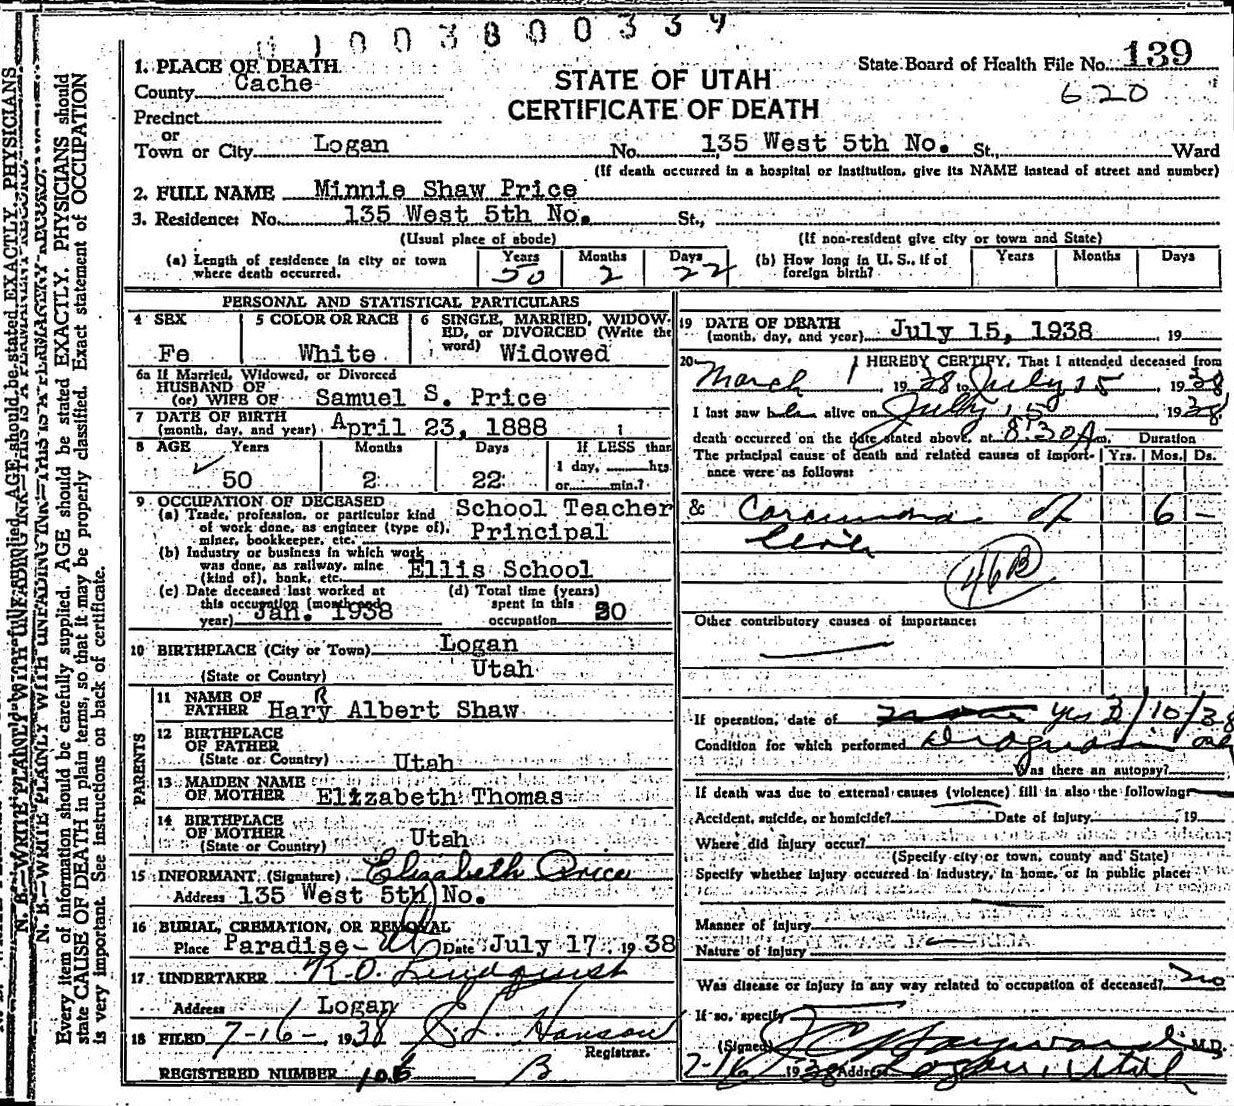 01003800339
1. PLACE OF DEATH
County Cache
Precinct
or
Town or City Logan
STATE OF UTAH
CERTIFICATE OF DEATH
State Board of Health File No. 139
620
No. 135 West 5th No. St., Ward
(If death occurred in a hospital or institution, give its NAME instead of street and number)
2. FULL NAME Minnie Shaw Price
3. Residence: No. 135 West 5th No. St.,
(Usual place of abode) (If non-resident give city or town and State)
(a) Length of residence in city or town where death occurred. Years 50 Months 2 Days 22
(b) How long in U. S., if of foreign birth? Years Months Days
PERSONAL AND STATISTICAL PARTICULARS
4 SEX Fe
5 COLOR OR RACE White
6 SINGLE, MARRIED, WIDOWED, or DIVORCED (Write the word) Widowed
6a If Married, Widowed, or Divorced
HUSBAND OF
(or) WIFE OF Samuel S. Price
7 DATE OF BIRTH
(month, day, and year) April 23, 1888
8 AGE Years Months Days If LESS than
1 day, hrs.
50 2 22 or min.?
9 OCCUPATION OF DECEASED
(a) Trade, profession, or particular kind of work done, as engineer (type of), miner, bookkeeper, etc. School Teacher Principal
(b) Industry or business in which work was done, as railway, mine (kind of), bank, etc. Ellis School
(c) Date deceased last worked at this occupation (month and year) Jan. 1938
(d) Total time (years) spent in this occupation 20
10 BIRTHPLACE (City or Town) Logan
(State or Country) Utah
11 NAME OF FATHER Hary Albert Shaw
R
12 BIRTHPLACE OF FATHER
(State or Country) Utah
PARENTS
13 MAIDEN NAME OF MOTHER Elizabeth Thomas
14 BIRTHPLACE OF MOTHER
(State or Country) Utah
15 INFORMANT (Signature) Elizabeth Price
Address 135 West 5th No.
16 BURIAL, CREMATION, OR REMOVAL
Place Paradise - U Date July 17 1938
17 UNDERTAKER R. O. Lindquist
Address Logan
18 FILED 7-16-, 1938 Hanson
Registrar.
REGISTERED NUMBER 106 B
19 DATE OF DEATH
(month, day, and year) July 15, 1938, 19
20 I HEREBY CERTIFY, That I attended deceased from
March 1, 1938 to July 15, 1938
I last saw her alive on July 15, 1938
death occurred on the date stated above, at 8:30 A m.
Duration
The principal cause of death and related causes of importance were as follows: Yrs. Mos. Ds.
& Carcinoma of 6 -
46B
Other contributory causes of importance:
If operation, date of yes 2/10/38
Condition for which performed Diagnosis only
Was there an autopsy?
If death was due to external causes (violence) fill in also the following:
Accident, suicide, or homicide? Date of injury , 19
Where did injury occur?
(Specify city or town, county and State)
Specify whether injury occurred in industry, in home, or in public place:
Manner of injury
Nature of injury
Was disease or injury in any way related to occupation of deceased? No
If so, specify
(Signed) Hayward M.D.
7-16 1938 Address Logan, Utah
N. B.—WRITE PLAINLY WITH UNFADING INK—THIS IS A PERMANENT RECORD
Every item of information should be carefully supplied. AGE should be stated EXACTLY. PHYSICIANS should
state CAUSE OF DEATH in plain terms, so that it may be properly classified. Exact statement of OCCUPATION
is very important. See instructions on back of certificate.